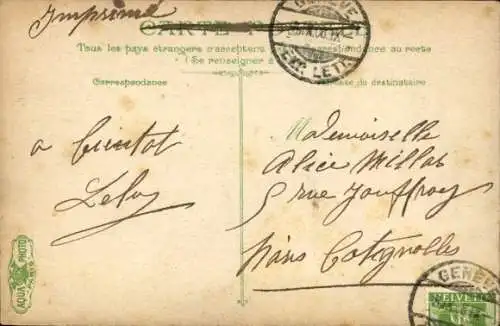 Imprimé
CARTE POSTALE
Tous les pays étrangers n'acceptent pas la correspondance au recto
(Se renseigner à la
Correspondance
Adresse du destinataire
GENÈVE
EXP. LETT.
a bientot
Mademoiselle
Alice Millot
5 rue Jouffroy
Paris Batignolles
AQUA PHOTO
PARIS
GENÈVE
HELVETIA